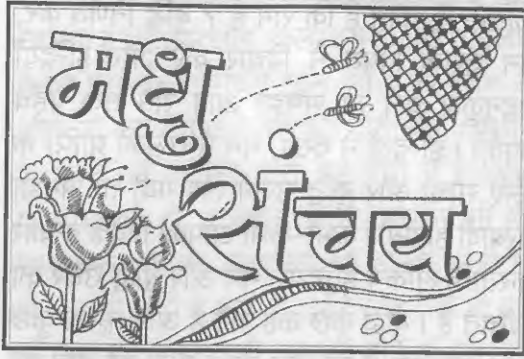 मधु
संचय